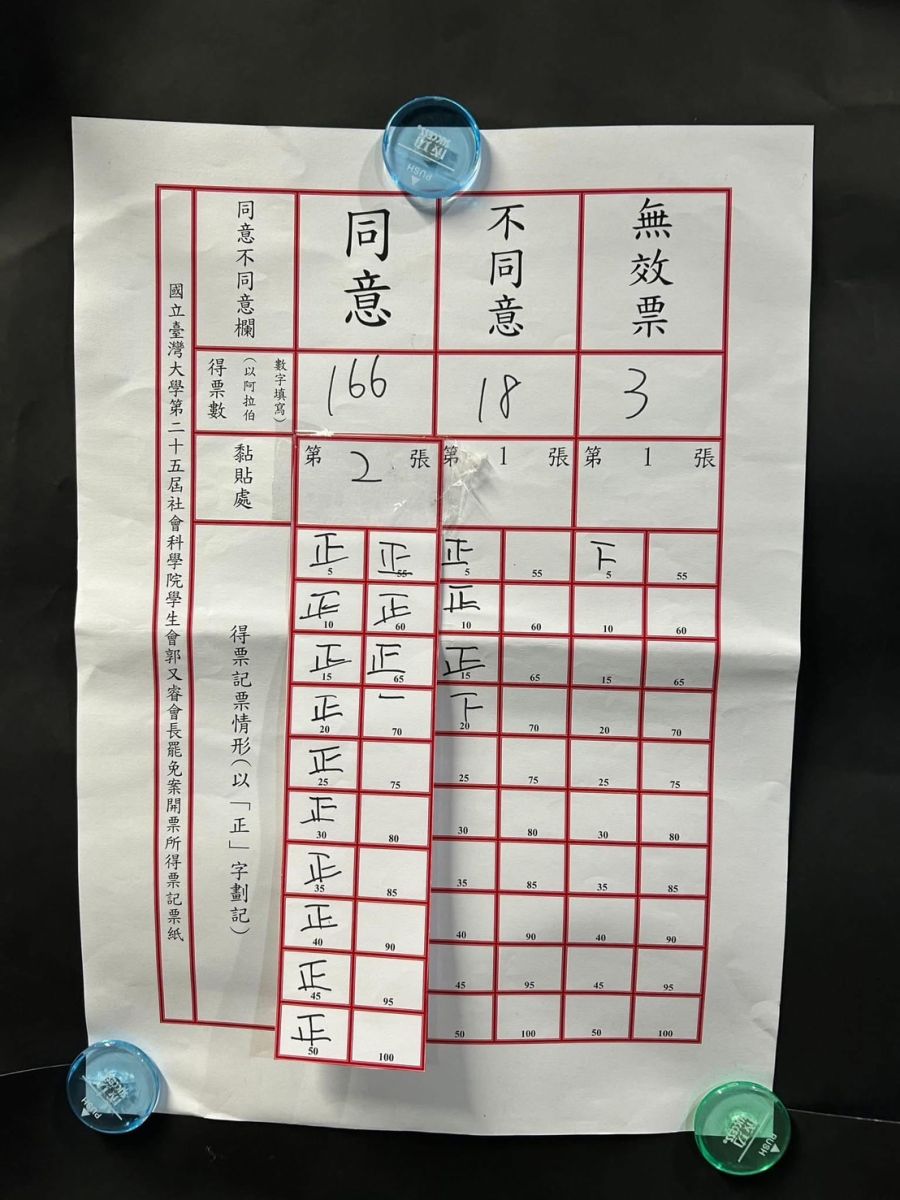 國立臺灣大學第二十五屆社會科學院學生會郭又睿會長罷免案開票所得票記票紙
同意不同意欄
同意
不同意
無效票
得票數
(以阿拉伯
數字填寫)
166
18
3
黏貼處
第 2 張
第 1 張
第 1 張
得票記票情形(以「正」字劃記)
正 5 正 55 正 5 55 下 5 55
正 10 正 60 正 10 60 10 60
正 15 正 65 正 15 65 15 65
正 20 一 70 下 20 70 20 70
正 25 75 25 75 25 75
正 30 80 30 80 30 80
正 35 85 35 85 35 85
正 40 90 40 90 40 90
正 45 95 45 95 45 95
正 50 100 50 100 50 100
PUSH
PUSH
PUSH